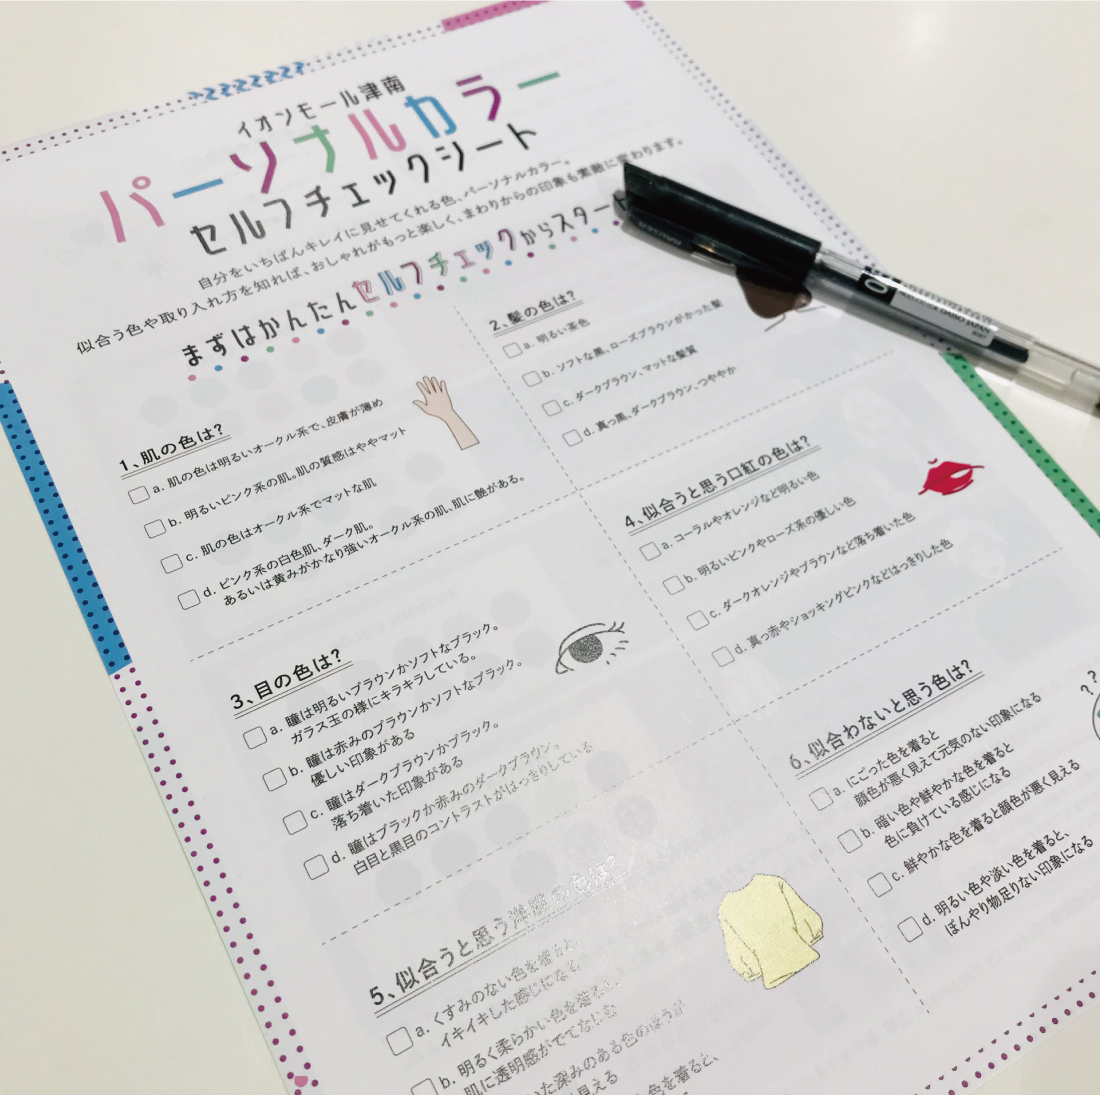 イオンモール津南
パーソナルカラー
セルフチェックシート
自分をいちばんキレイに見せてくれる色、パーソナルカラー。
似合う色や取り入れ方を知れば、おしゃれがもっと楽しく、まわりからの印象も素敵に変わります。
まずはかんたんセルフチェックからスタート
1、肌の色は?
a. 肌の色は明るいオークル系で、皮膚が薄め
b. 明るいピンク系の肌。肌の質感はややマット
c. 肌の色はオークル系でマットな肌
d. ピンク系の白色肌、ダーク肌。
あるいは黄みがかなり強いオークル系の肌、肌に艶がある。
2、髪の色は?
a. 明るい茶色
b. ソフトな黒、ローズブラウンがかった髪
c. ダークブラウン、マットな髪質
d. 真っ黒、ダークブラウン、つややか
3、目の色は?
a. 瞳は明るいブラウンかソフトなブラック。
ガラス玉の様にキラキラしている。
b. 瞳は赤みのブラウンかソフトなブラック。
優しい印象がある
c. 瞳はダークブラウンかブラック。
落ち着いた印象がある
d. 瞳はブラックか赤みのダークブラウン。
白目と黒目のコントラストがはっきりしている
4、似合うと思う口紅の色は?
a. コーラルやオレンジなど明るい色
b. 明るいピンクやローズ系の優しい色
c. ダークオレンジやブラウンなど落ち着いた色
d. 真っ赤やショッキングピンクなどはっきりした色
5、似合うと思う洋服の色は?
a. くすみのない色を着ると、
イキイキした感じになる
b. 明るく柔らかい色を着ると、
肌に透明感がでてなじむ
いた深みのある色のほうが
見える
色を着ると、
6、似合わないと思う色は?
a. にごった色を着ると
顔色が悪く見えて元気のない印象になる
b. 暗い色や鮮やかな色を着ると
色に負けている感じになる
c. 鮮やかな色を着ると顔色が悪く見える
d. 明るい色や淡い色を着ると、
ぼんやり物足りない印象になる
??